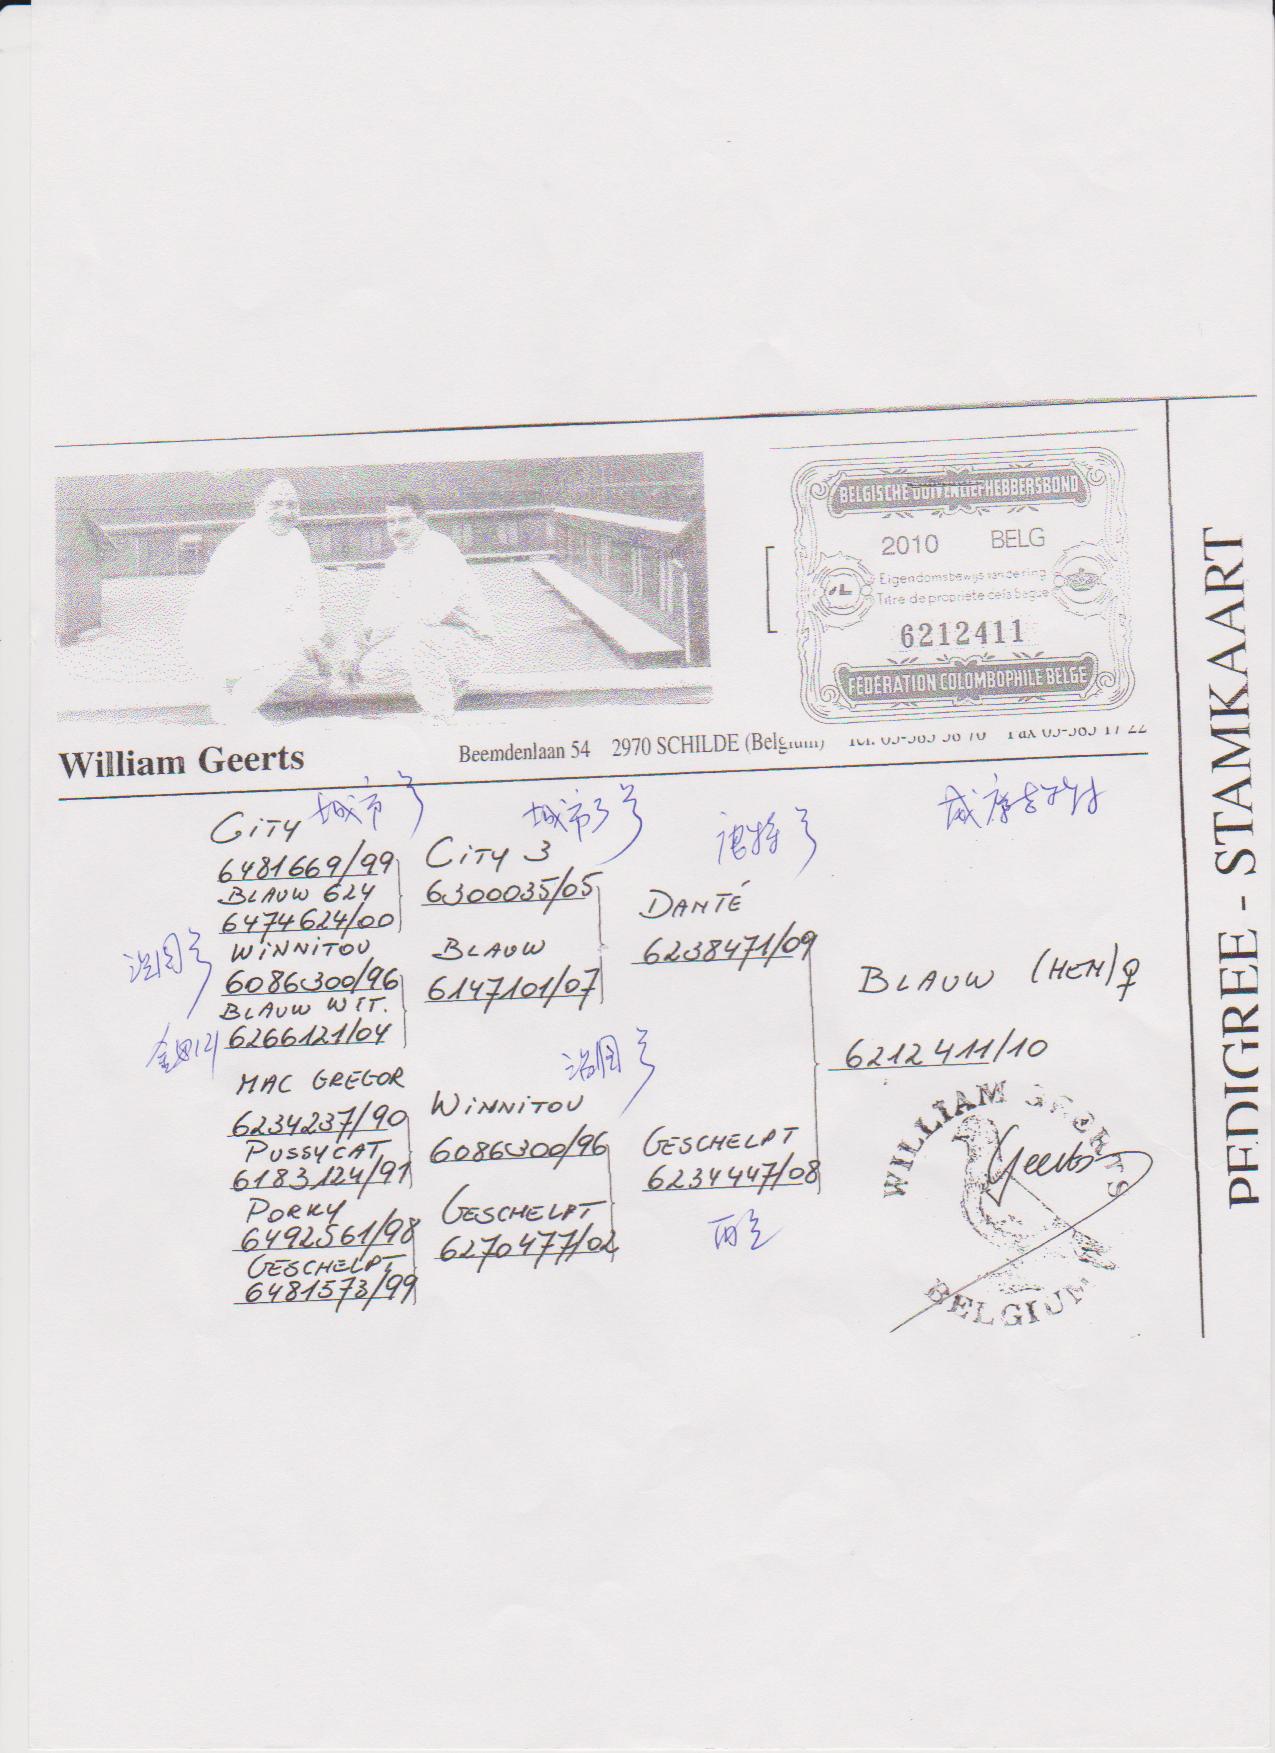 BELGISCHE DUIVENLIEFHEBBERSBOND
2010 BELG
Eigendomsbewijs van de ring
Titre de propriete de la bague
6212411
FEDERATION COLOMBOPHILE BELGE
William Geerts
Beemdenlaan 54 2970 SCHILDE (Belgium)
PEDIGREE - STAMKAART
城市号
城市3号
号
威廉
CITY
6481669/99
BLAUW 624
6474624/00
WINNITOU
6086300/96
BLAUW WIT.
6266121/04
MAC GREGOR
6234237/90
PUSSYCAT
6183124/91
PORKY
6492561/98
GESCHELPT
6481573/99
CITY 3
6300035/05
BLAUW
6147101/07
WINNITOU
6086300/96
GESCHELPT
6270477/02
DANTÉ
6238471/09
GESCHELPT
6234447/08
BLAUW (HEN) ♀
6212411/10
WILLIAM GEERTS
Geerts
BELGIUM